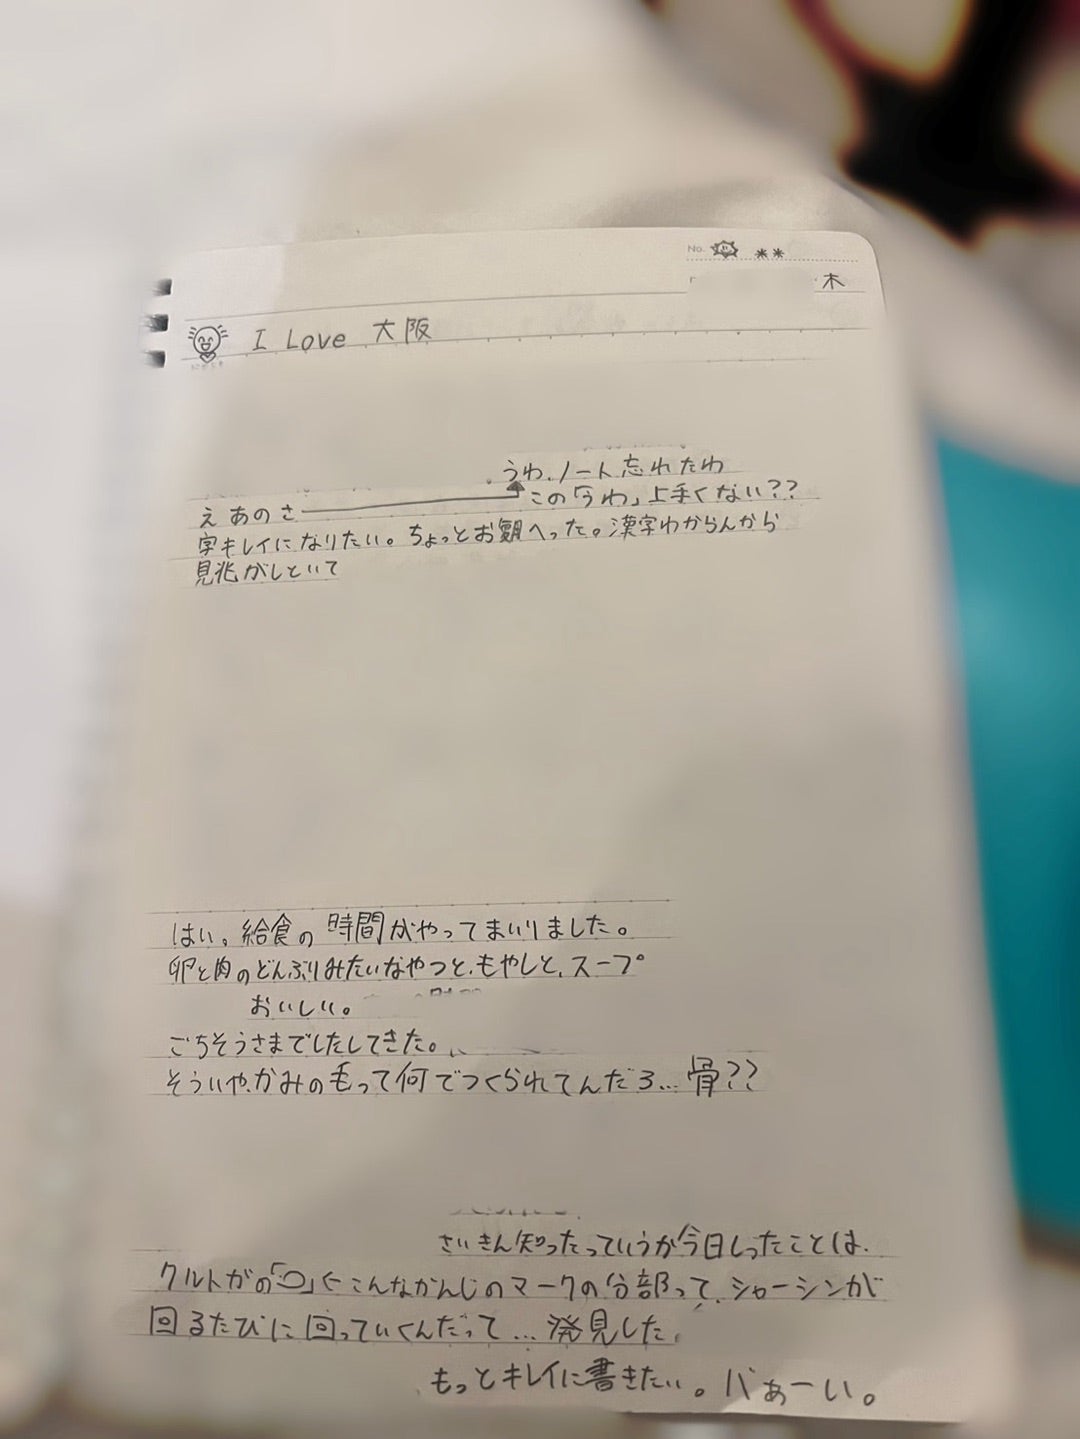 No. **
木
I Love 大阪
うわ、ノート忘れたわ
この「うわ」上手くない??
え あのさ
字キレイになりたい。ちょっとお観へった。漢字わからんから
見兆がしといて
はい。給食の時間がやってまいりました。
卵と肉のどんぶりみたいなやつと、もやしと、スープ
おいしい。
ごちそうさまでしたしてきた。
そういや、かみの毛って何でつくられてんだろ…骨??
さいきん知ったっていうか今日しったことは、
クルトガの「」←こんなかんじのマークの分部って、シャーシンが
回るたびに回っていくんだって…発見した。
もっとキレイに書きたい。バぁーい。